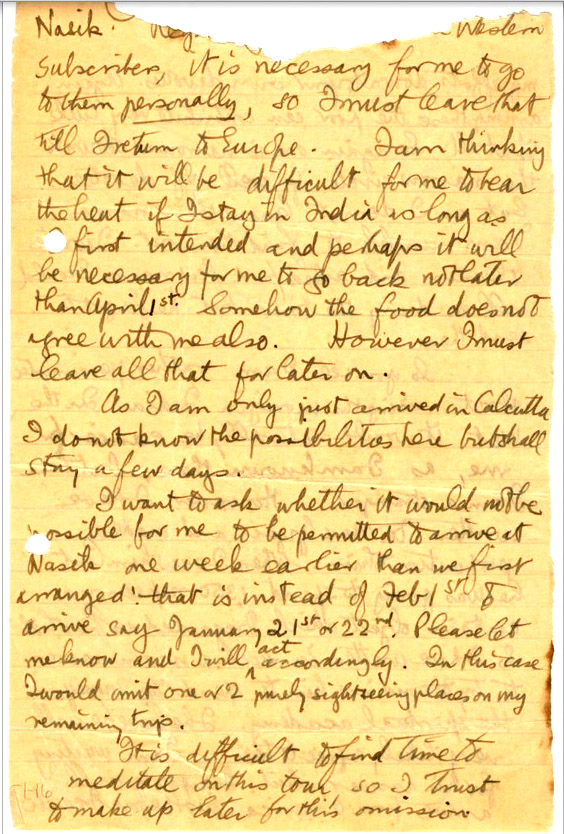 Nasik. Western
Subscribers, it is necessary for me to go
to them personally, so I must leave that
till I return to Europe. I am thinking
that it will be difficult for me to bear
the heat if I stay in India so long as
first intended and perhaps it will
be necessary for me to go back not later
than April 1st. Somehow the food does not
agree with me also. However I must
leave all that for later on.
As I am only just arrived in Calcutta
I do not know the possibilities here but shall
stay a few days.
I want to ask whether it would not be
possible for me to be permitted to arrive at
Nasik one week earlier than we first
arranged: that is instead of Feb 1st to
arrive say January 21st or 22nd. Please let
me know and I will act accordingly. In this case
I would omit one or 2 purely sightseeing places on my
remaining trip.
It is difficult to find time to
meditate on this tour so I trust
to make up later for this omission